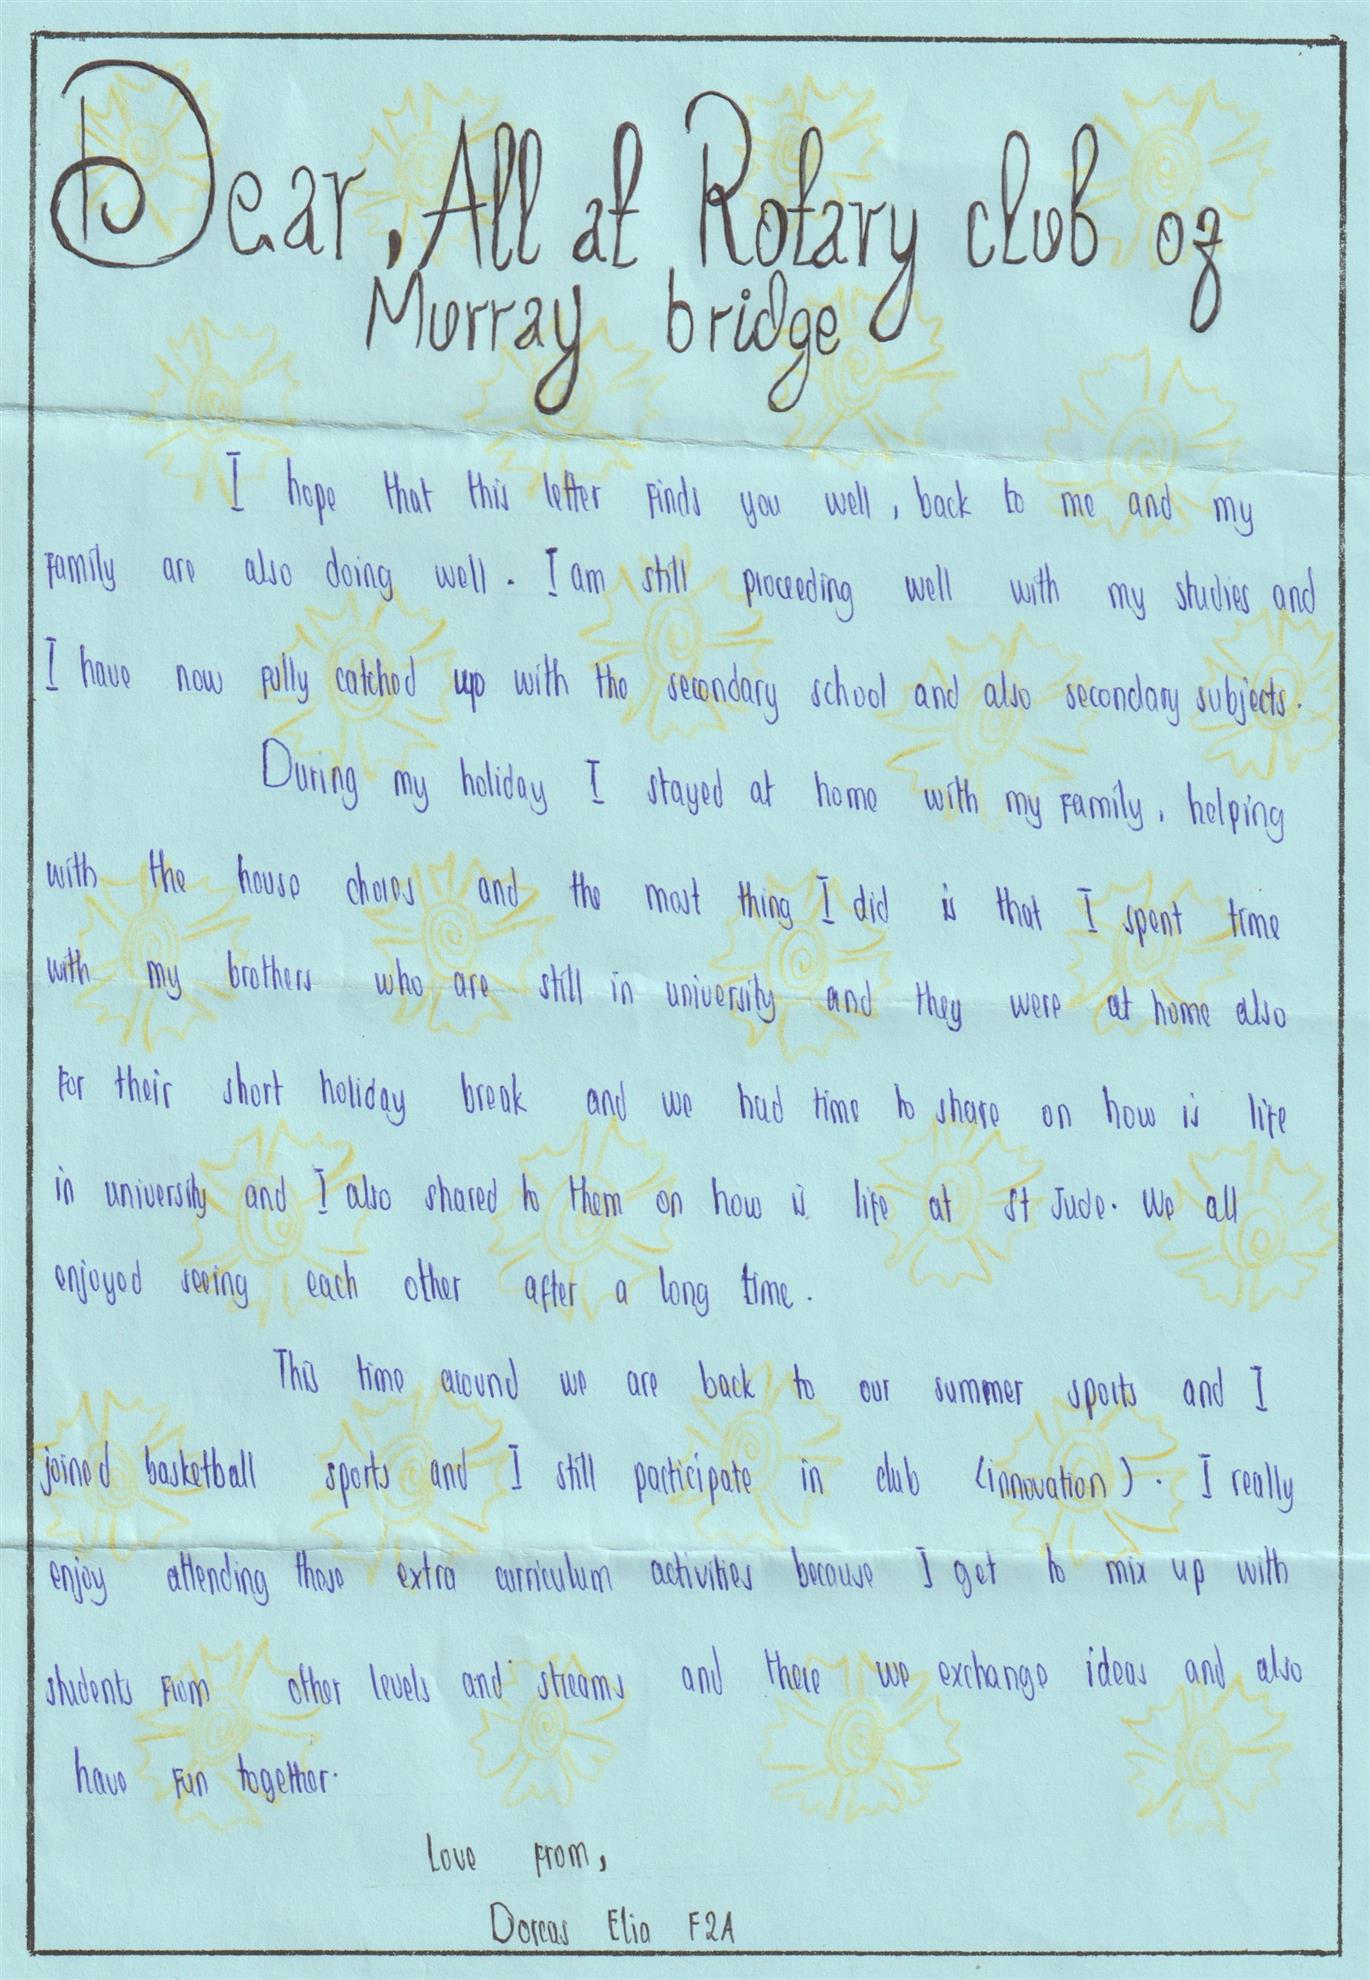 Dear, All at Rotary club of
Murray bridge
I hope that this letter finds you well, back to me and my
family are also doing well. I am still proceeding well with my studies and
I have now fully catched up with the secondary school and also secondary subjects.
During my holiday I stayed at home with my family, helping
with the house chores and the most thing I did is that I spent time
with my brothers who are still in university and they were at home also
for their short holiday break and we had time to share on how is life
in university and I also shared to them on how is life at St Jude. We all
enjoyed seeing each other after a long time.
This time around we are back to our summer sports and I
joined basketball sports and I still participate in club (innovation). I really
enjoy attending those extra curriculum activities because I get to mix up with
students from other levels and streams and there we exchange ideas and also
have fun together.
Love from,
Dorcas Elia F2A